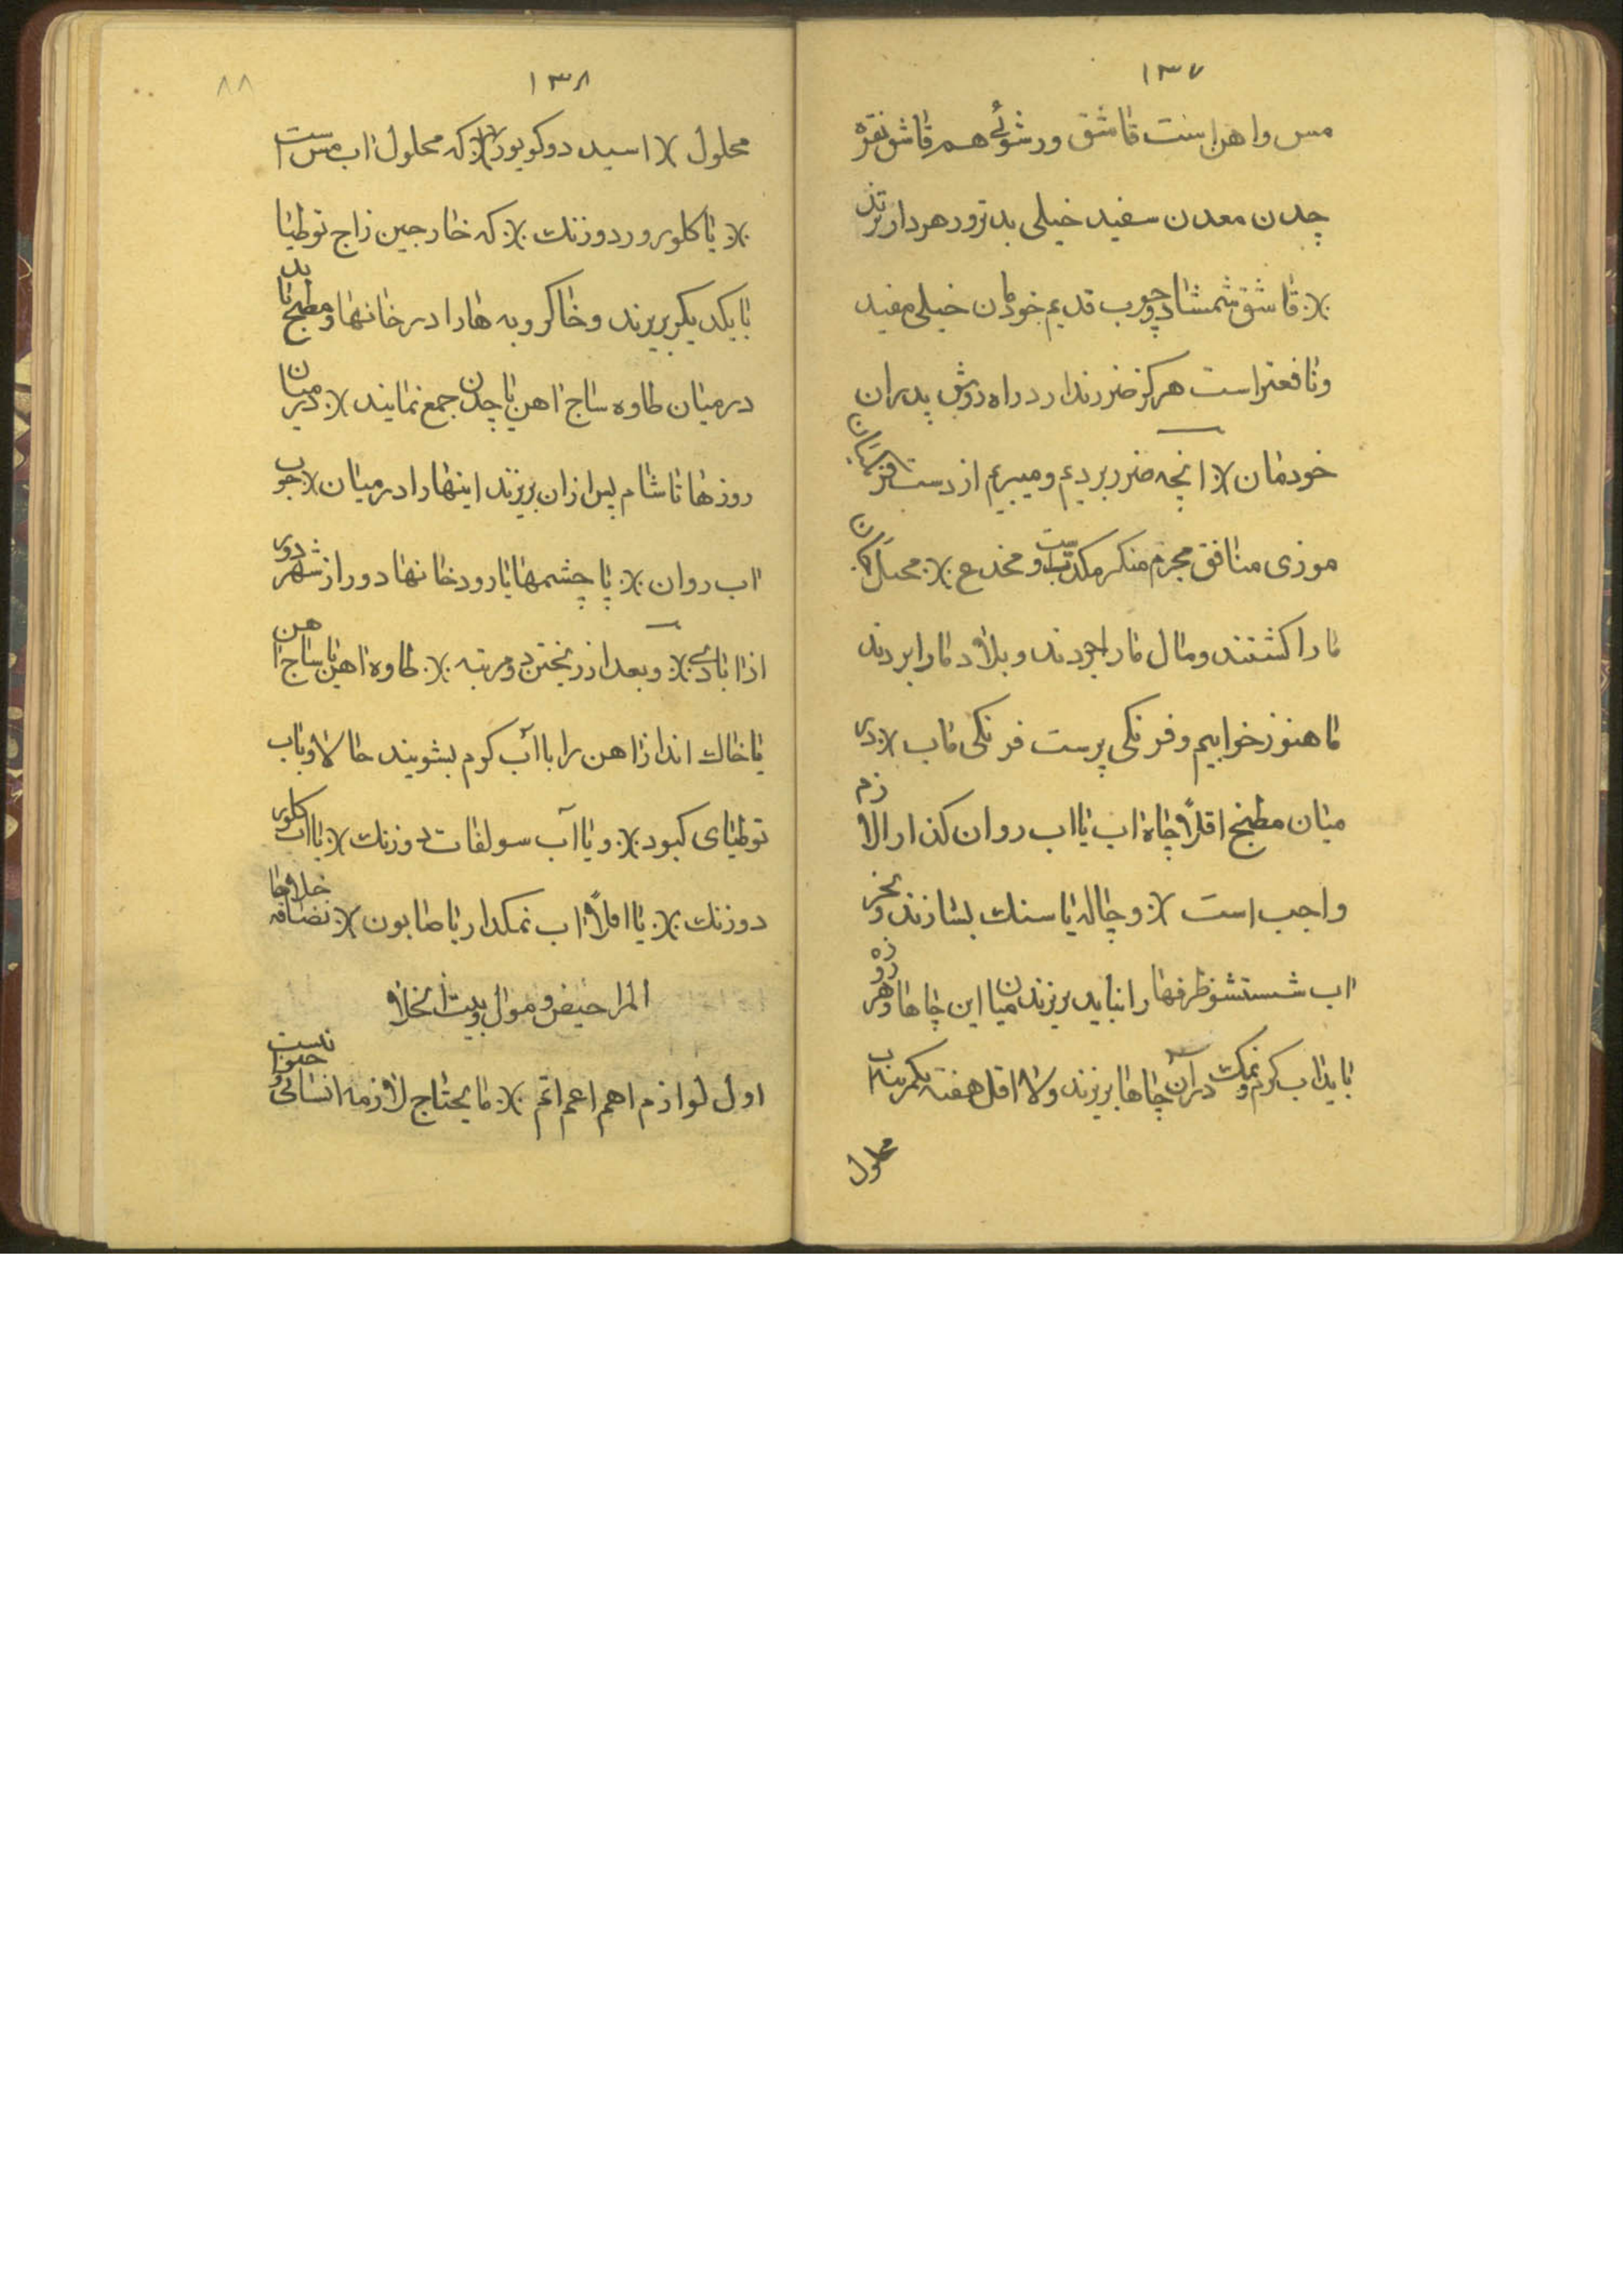 ۱۳۷
مس و اهن است قاشق ورشوئے هم قاشق نقره
چدن معدن سفید خیلی بدتر و رهردارترند
؞ قاشق شمشاد و چوب قدیم خودمان خیلی مفید
و نافعتر است هرکز ضرر ندارد راه روش پدران
خودمان ؞ انچه ضرر بردیم و میبریم از دست
موزی منافق مجرم منکر و مخدع ؞
ما را کشتند و مال ما را خوردند و بلاد ما را بردند
ما هنوز خوابیم و فرنکی پرست فرنکی ماب ؞ در
میان مطبخ اقلاً چاه اب یا اب روان کذار الازم
واجب است ؞ و چاله یا سنك بسازند و
اب شستشو ظرفها را نباید بریزند میان این چاها و هر روزه
باید اب کرم و نمك در آن چاها بریزند و لا اقل هفته یکمرتبه اب
محلول
۱۳۸
۸۸
محلول ؞ اسید دو کویور ؞ که محلول اب مس است
؞ یا کلورور دوزنك ؞ که خارجین زاج توطیا
با یکدیکر بریزند و خاکروبه ها را در خانها و مطبخ باید
در میان طاوه ساج اهن یا چدن جمع نمایند ؞ در میان
روزها تا شام پس از ان بریزند اینها را در میان ؞ جوب
اب روان ؞ یا چشمها یا رودخانها دور از شهر دور
از ابادے ؞ و بعد از ریختن دو مرتبه ؞ طاوه اهن یا ساج اهن
یا خاك انداز اهن را با آب کرم بشویند حالا و یا اب
توطیای کبود ؞ و یا آب سولفات دوزنك ؞ یا اب کلور
دوزنك ؞ یا اقلاً اب نمکدار با صابون ؞
المراحیض و موال و بیت الخلا
اول لوازم اهم اعم اتم ؞ مایحتاج لازمه انسانی و